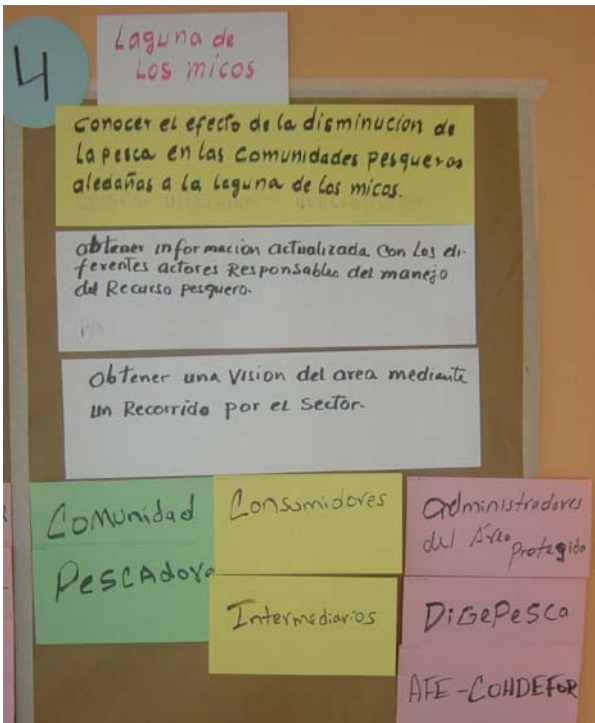 4
Laguna de
Los micos
Conocer el efecto de la disminucion de
La pesca en las comunidades pesqueras
aledañas a la laguna de los micos.
obtener informacion actualizada con los di-
ferentes actores Responsables del manejo
del Recurso pesquero.
obtener una vision del area mediante
un Recorrido por el Sector.
Comunidad
PESCAdora
Consumidores
Intermediarios
Administradores
del Área
Protegida
DiGePesca
AFE-COHDEFOR